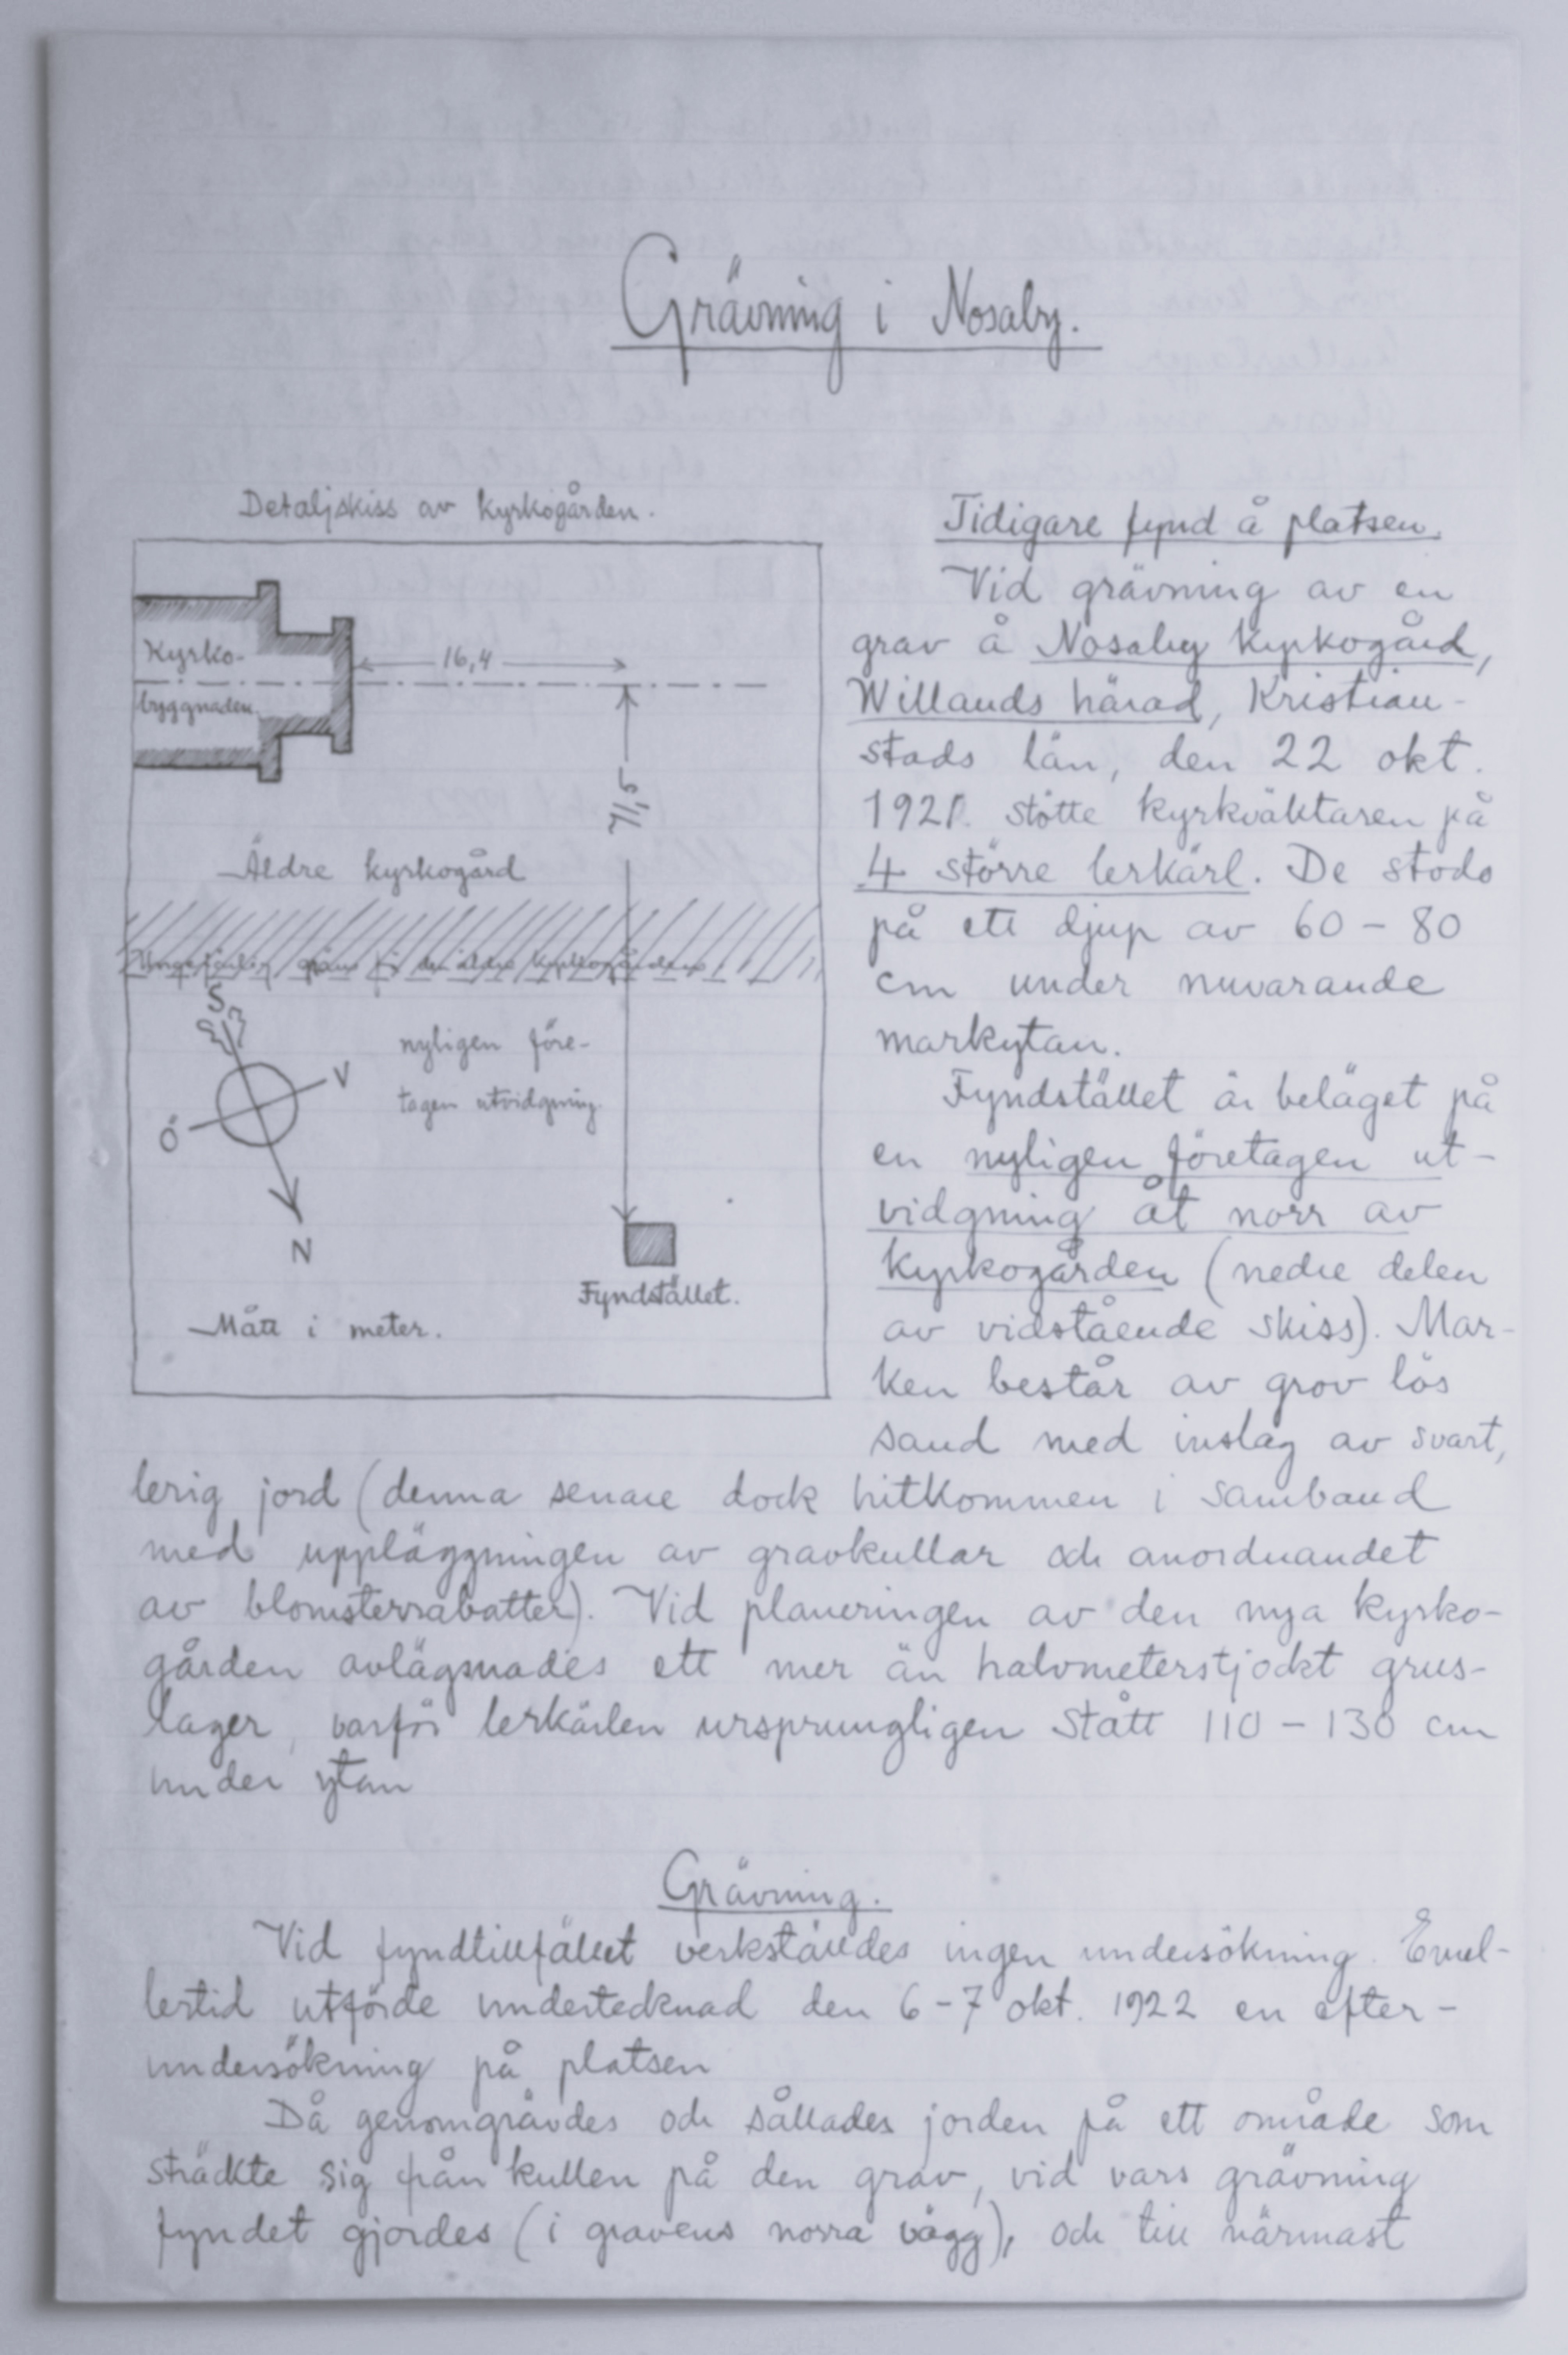 Grävning i Nosaby.
Detaljskiss av kyrkogården.
Kyrko-
byggnaden.
16,4
71,5
Äldre kyrkogård
Ungefärlig gräns för den äldre kyrkogården
S
V
Ö
N
nyligen före-
tagen utvidgning.
Fyndstället.
Mått i meter.
Tidigare fynd å platsen.
Vid grävning av en
grav å Nosaby kyrkogård,
Willands härad, Kristian-
stads län, den 22 okt.
stötte kyrkväktaren på
4 större lerkärl. De stodo
på ett djup av 60 – 80
cm under nuvarande
markytan.
Fyndstället är beläget på
en nyligen företagen ut-
vidgning åt norr av
kyrkogården (nedre delen
av vidstående skiss). Mar-
ken består av grov lös
sand med inslag av svart,
lerig jord (denna senare dock hitkommen i samband
med uppläggningen av gravkullar och anordnandet
av blomsterrabatter). Vid planeringen av den nya kyrko-
gården avlägsnades ett mer än halvmeterstjockt grus-
lager, varför lerkärlen ursprungligen stått 110 – 130 cm
under ytan
Grävning.
Vid fyndtillfället verkställdes ingen undersökning. Emel-
lertid utförde undertecknad den 6 – 7 okt. 1922 en efter-
undersökning på platsen
Då genomgrävdes och sållades jorden på ett område som
sträckte sig från kullen på den grav, vid vars grävning
fyndet gjordes (i gravens norra vägg), och till närmast